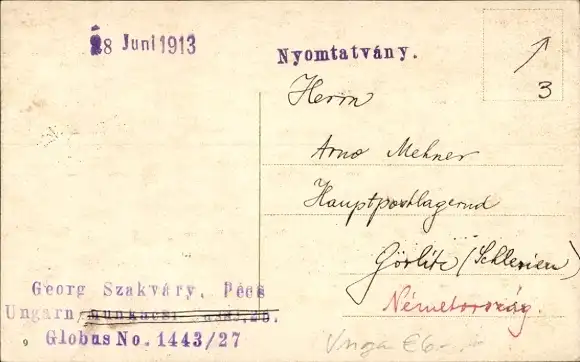 28 Juni 1913
Nyomtatvány.
3
Herrn
Arno Mehner
Hauptpostlagernd
Görlitz (Schlesien)
Németország.
Georg Szakváry, Pécs
Ungarn
Globus No. 1443/27
9